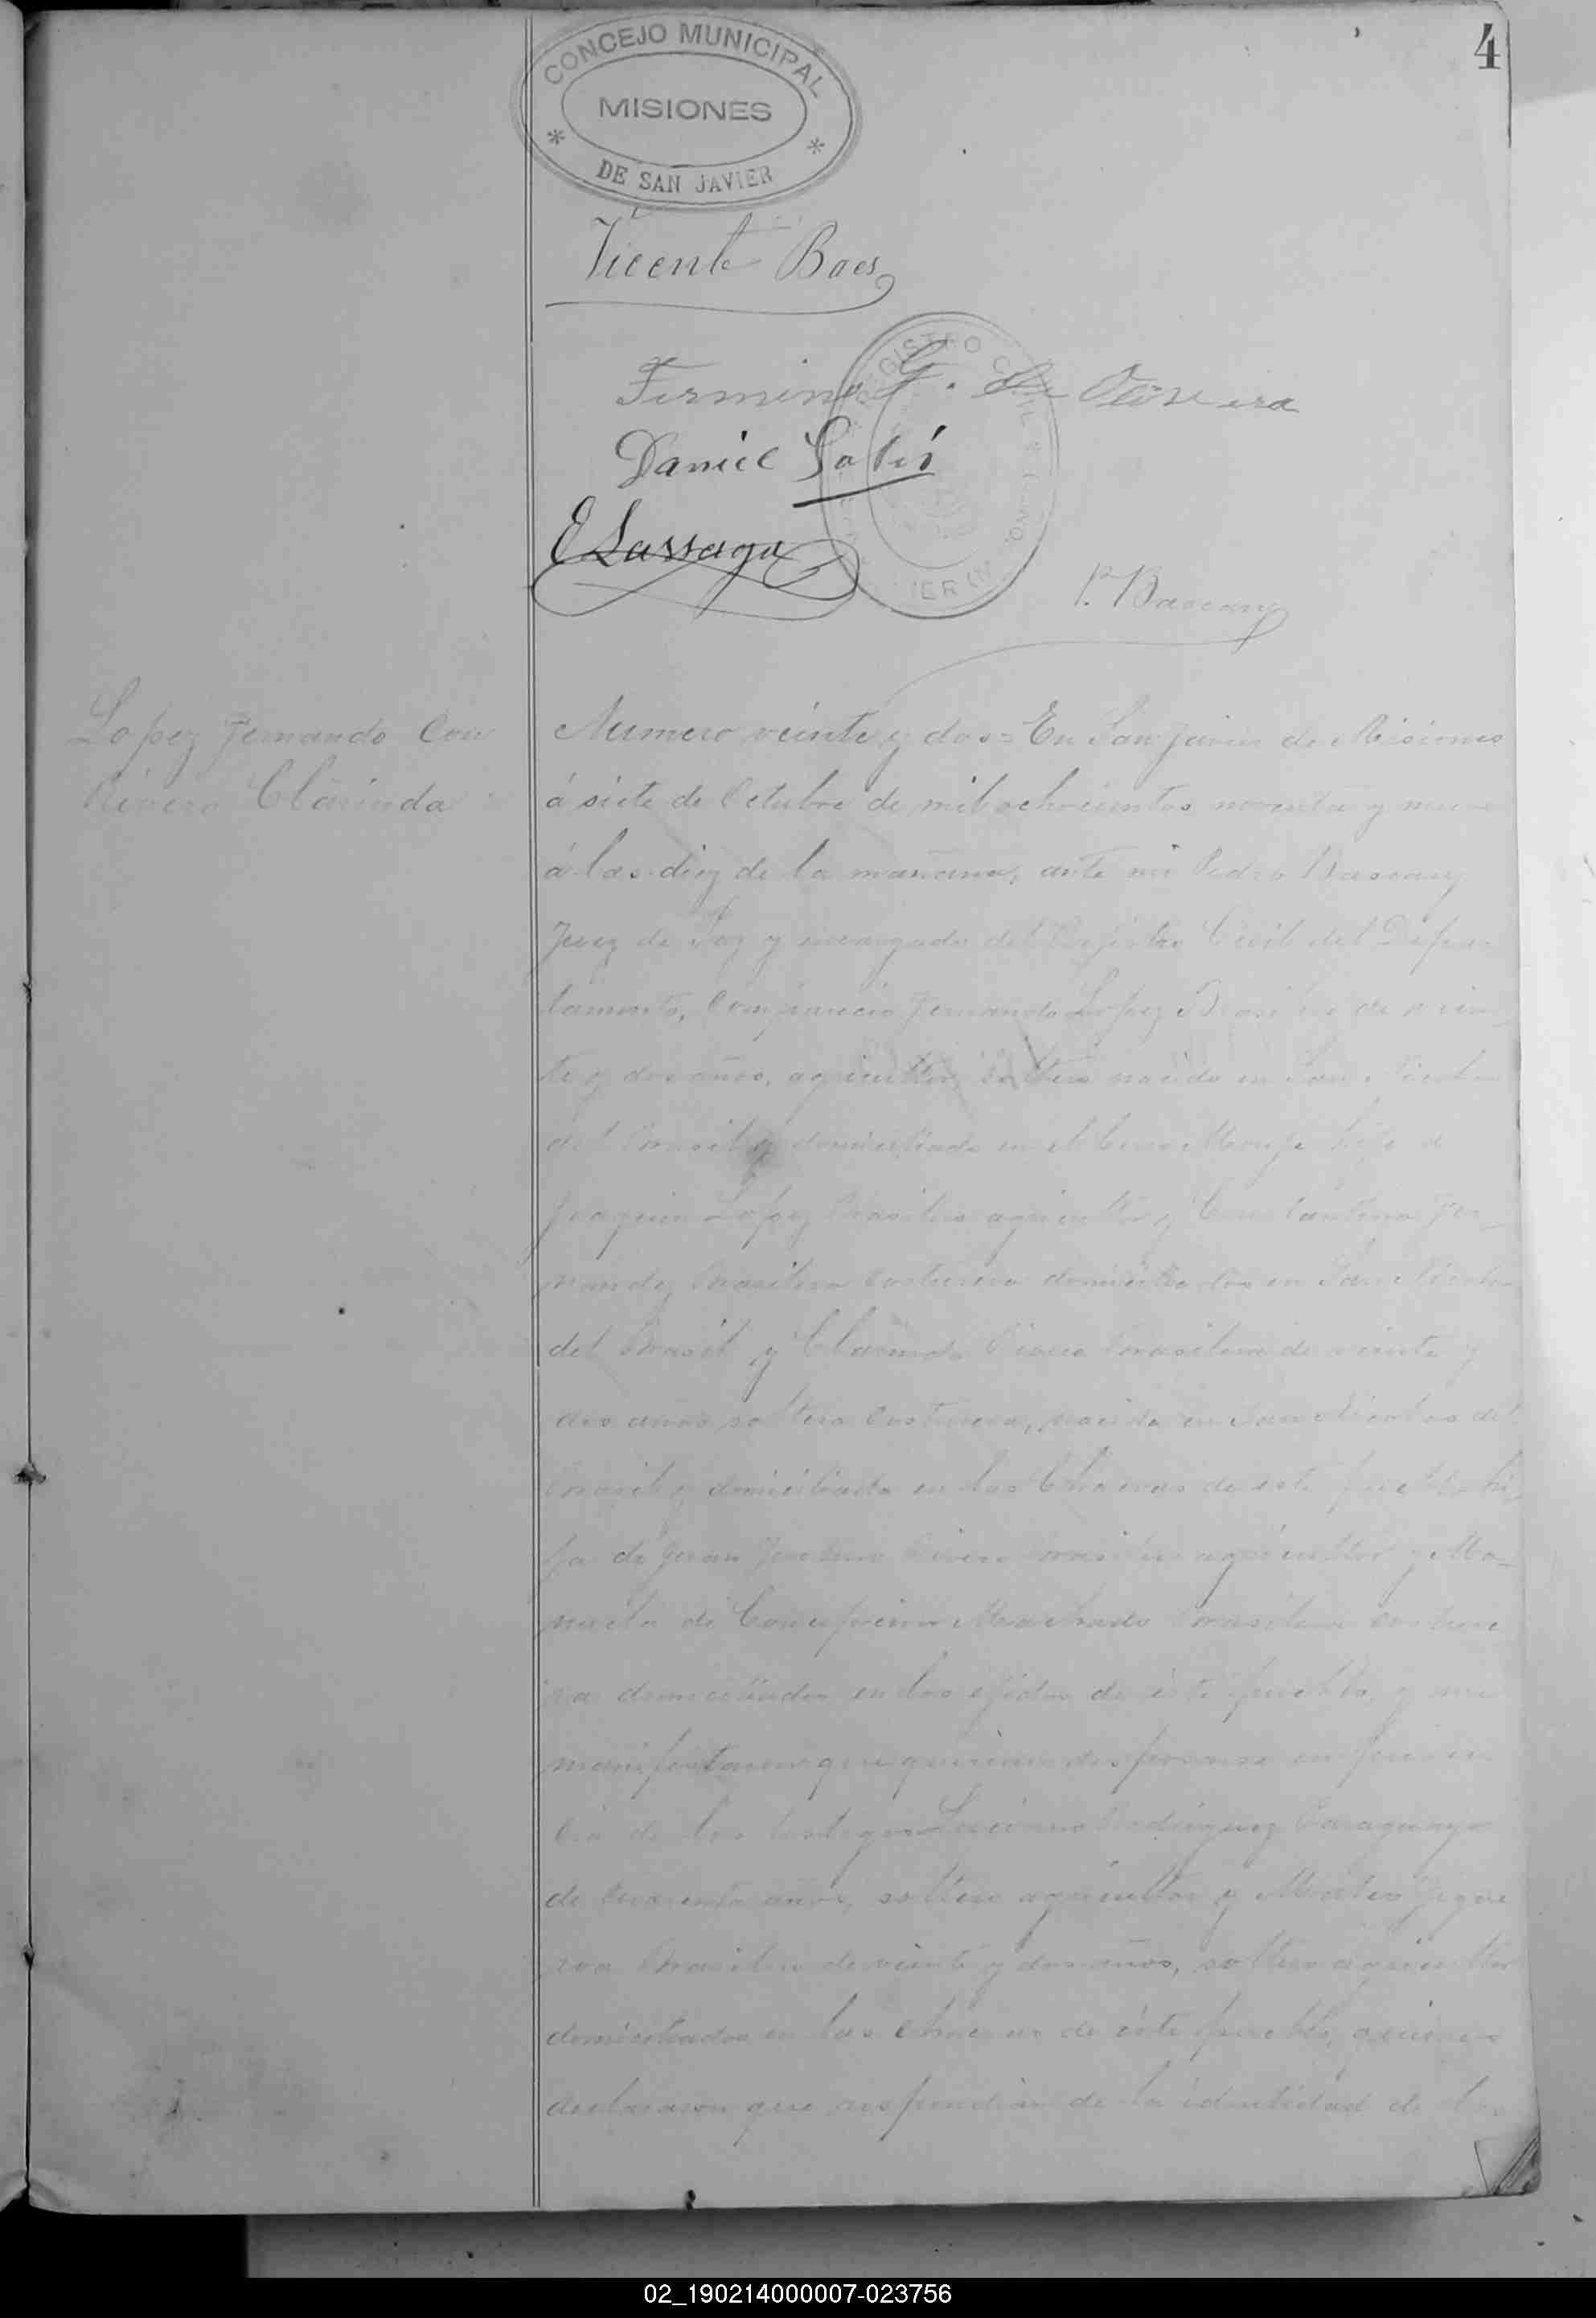 4
CONCEJO MUNICIPAL
MISIONES
DE SAN JAVIER
Vicente Baes
Fermino G. de Oliveira
REGISTRO CIVIL
Daniel
E Lassaga
P. Bascary
Lopez Fernando Con
Rivero Clarinda
Numero veinte y dos = En San Javier de Misiones
á siete de Octubre de mil ochocientos noventa y nueve
á las diez de la mañana, ante mi Pedro Bascary
Juez de Paz y encargado del Registro Civil del Depar
tamento, Comparecio Fernando Lopez Brasilero de vein
te y dos años, agricultor, soltero nacido en San Nicolas
del Brasil y domiciliado en el Cerro Monje hijo d
Joaquin Lopez Brasilero agricultor y Constantina Fer
nandez Brasilera costurera domiciliados en San Nicolas
del Brasil y Clarinda Rivero Brasilera de veinte y
dos años soltera Costurera, nacida en San Nicolas del
Brasil y domiciliada en las Chacras de este pueblo hi
ja de Rivero Brasilero agricultor y Ma
nuela de Concepcion Machado Brasilera costure
ra domiciliados en los ejidos de este pueblo, y me
manifestaron que querian desposarse en presen
cia de los testigos Rodriguez Paraguayo
de cuarenta años, soltero agricultor y Mateo Figue
roa Brasilero de veinte y dos años, soltero agricultor
domiciliados en las chacras de este pueblo, quienes
declararon que respondian de la identidad de los
02_190214000007-023756